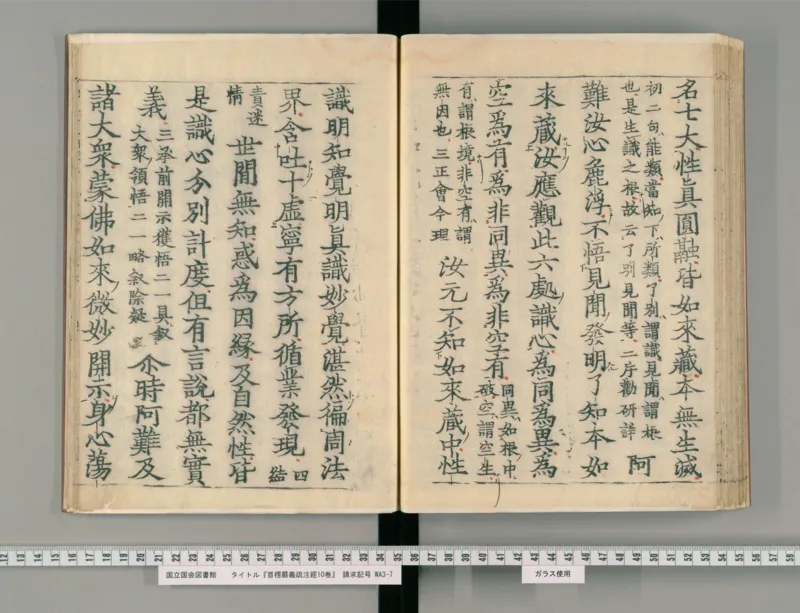 名七大性眞圓融皆如來藏本無生滅
初二句能類當知下所類了別謂識見聞謂根
也是生識之根故云了別見聞等二序勸研詳
阿
難汝心麁浮不悟見聞發明了知本如
來藏汝應觀此六處識心爲同爲異爲
空爲有爲非同異爲非空有
同異如根中
破空謂空生
有謂根境非空有謂
無因也三正會令理
汝元不知如來藏中性
識明知覺明眞識妙覺湛然徧周法
界含吐十虛寧有方所循業發現
四
結
責迷
情
世間無知惑爲因緣及自然性皆
是識心分別計度但有言說都無實
義
三承前開示獲悟二一具敘
大衆領悟二一略敘除疑
尒時阿難及
諸大衆蒙佛如來微妙開示身心蕩
国立国会図書館 タイトル『首楞嚴義疏注經10巻』 請求記号 WA3-7
ガラス使用